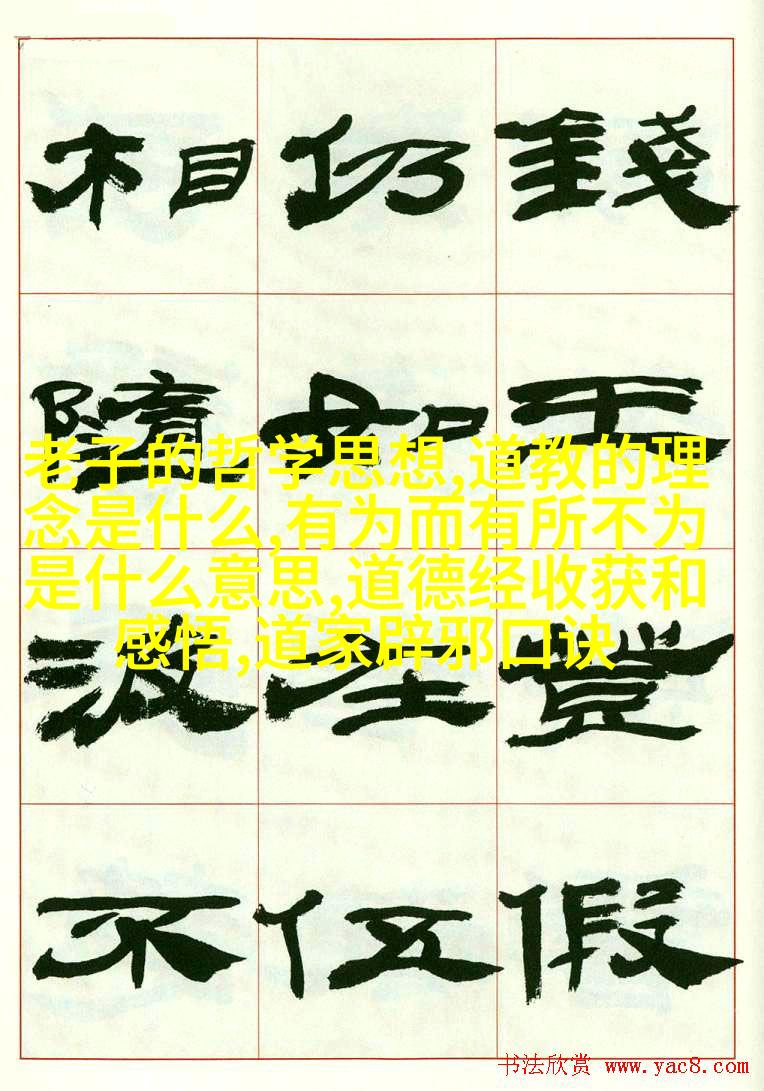 相仍錢
隨如天
波在豈
不伍假
老子的哲学思想,道教的理
念是什么,有为而有所不为
是什么意思,道德经收获和
感悟,道家辟邪口诀
书法欣赏 www.yac8.com